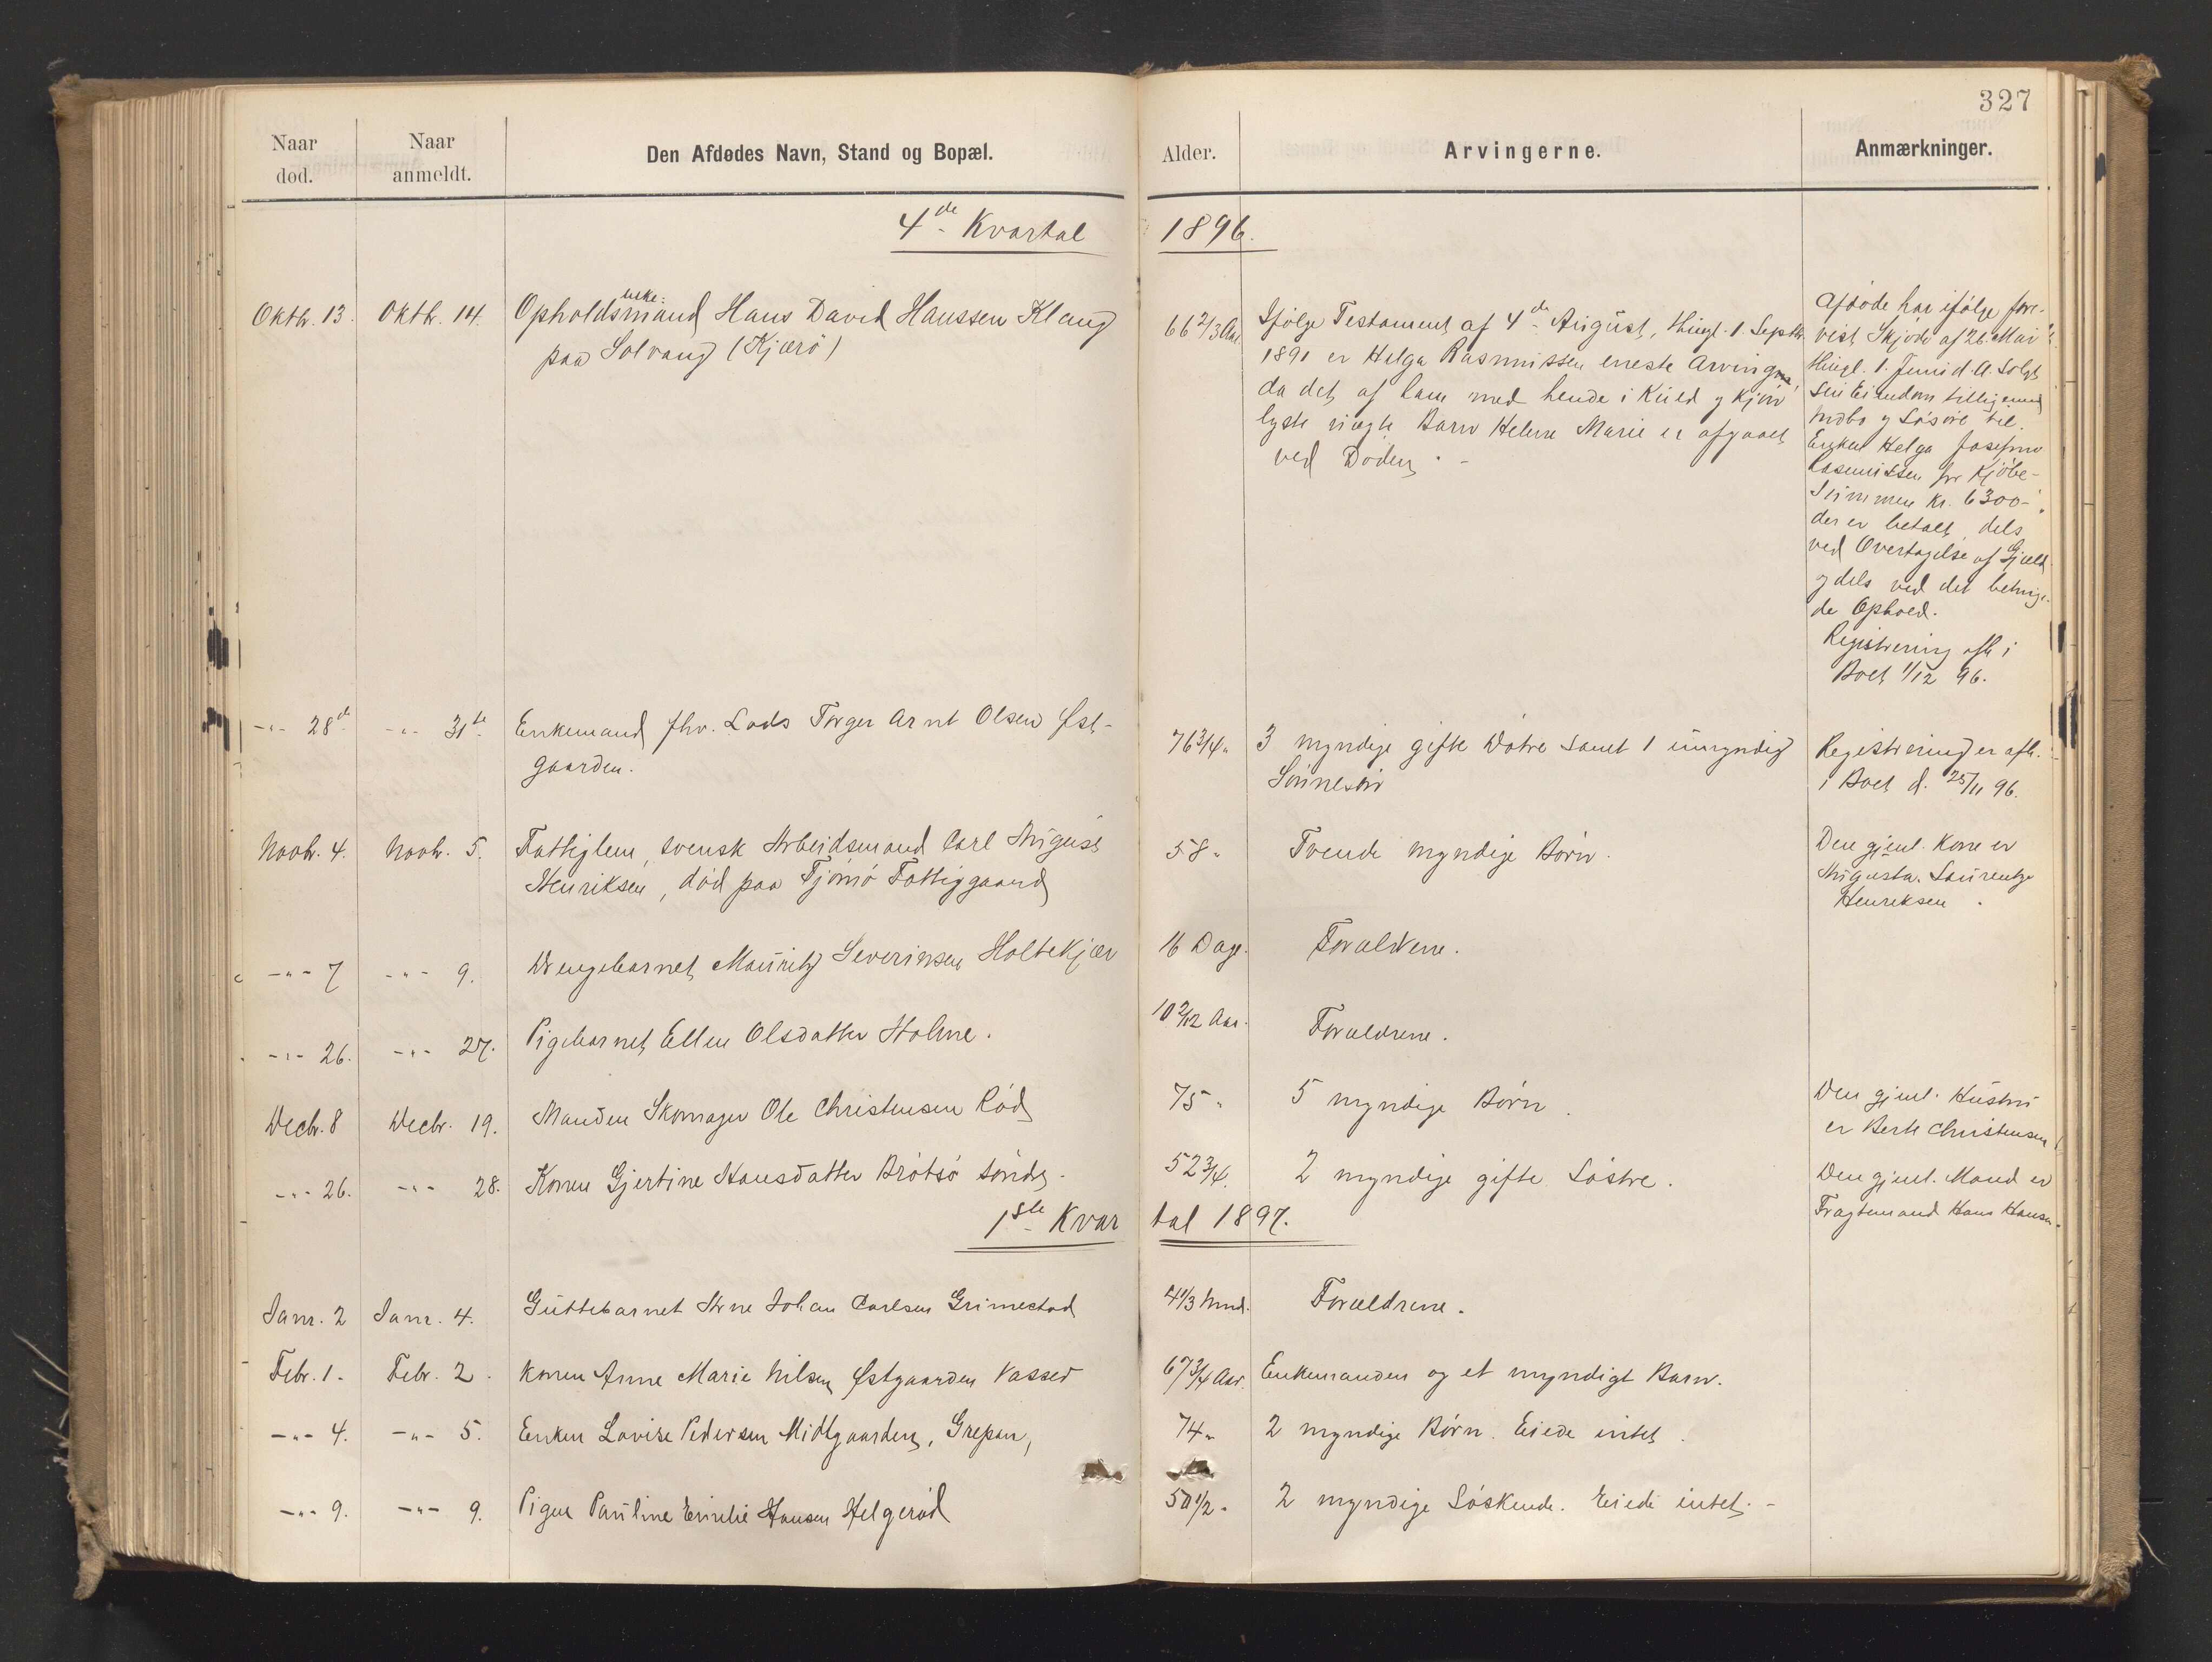 327
Naar død.
Naar anmeldt.
Den Afdødes Navn, Stand og Bopæl.
Alder.
Arvingerne.
Anmærkninger.
4de Kvartal 1896.
Oktbr. 13. Oktbr. 14. Opholdsmand Hans David Hanssen Klaug
enke:
paa Solvang (Kjærø)
66 2/3 Aar
Ifölge Testament af 4de August, thingl. 1. Septbr.
1891 er Helga Rasmussen eneste Arving,
da det af ham med hende i Kuld og Kjøn
lyste uægte Barn Helene Marie er afgaaet
ved Döden. -
Afdöde har ifölge fore-
vist Skjöde af 26. Mai
thingl. 1. Juni d. A. solgt
sin Eiendom tilligemed
Indbo og Lösöre til
Enken Helga Josefine
Rasmussen for Kjöbe-
Summen Kr. 6300-,
der er betalt, dels
ved Overtagelse af Gjæld
og dels ved det betinge-
de Ophold.
Registrering afh. i
Boet 1/12 96.
-"- 28de -"- 31te Enkemand fhv. Lods Torger Arnt Olsen Øst-
gaarden.
76 3/4 "
3 myndige gifte Døtre samt 1 umyndig
Sönnesön
Registrering er afh.
i Boet d. 25/11 96.
Novbr. 4. Novbr. 5. Fattiglem, svensk Arbeidsmand Carl August
Henriksen, död paa Tjömö Fattiggaard
58 "
Tvende myndige Börn.
Den gjenl. Kone er
Augusta Laurentze
Henriksen.
-"- 7 -"- 9. Drengebarnet Mauritz Severinsen Holtekjær
16 Dage.
Forældrene.
-"- 26. -"- 27. Pigebarnet Ellen Olsdatter Holme.
10 2/12 Aar.
Forældrene.
Decbr. 8 Decbr. 19. Manden Skomager Ole Christensen Röd
75 "
5 myndige Börn.
Den gjenl. Hustru
er Berte Christensen
-"- 26. -"- 28. Konen Gjertine Hansdatter Brötsö söndre.
52 3/4.
2 myndige gifte Söstre.
Den gjenl. Mand er
Fragtemand Hans Hansen.
1ste Kvartal 1897.
Janr. 2 Janr. 4. Guttebarnet Arne Johan Carlsen Grimestad
4 1/3 Mnd.
Forældrene.
Febr. 1. Febr. 2. Konen Anne Marie Nilsen Østgaarden Vasser
67 3/4 Aar.
Enkemanden og et myndigt Barn.
-"- 4. -"- 5. Enken Lovise Pedersen Midtgaarden, Grepan,
74 "
2 myndige Börn. Eiede intet.
-"- 9. -"- 9. Pigen Pauline Emilie Hansen Helgeröd
50 1/2 "
2 myndige Söskende. Eiede intet. -